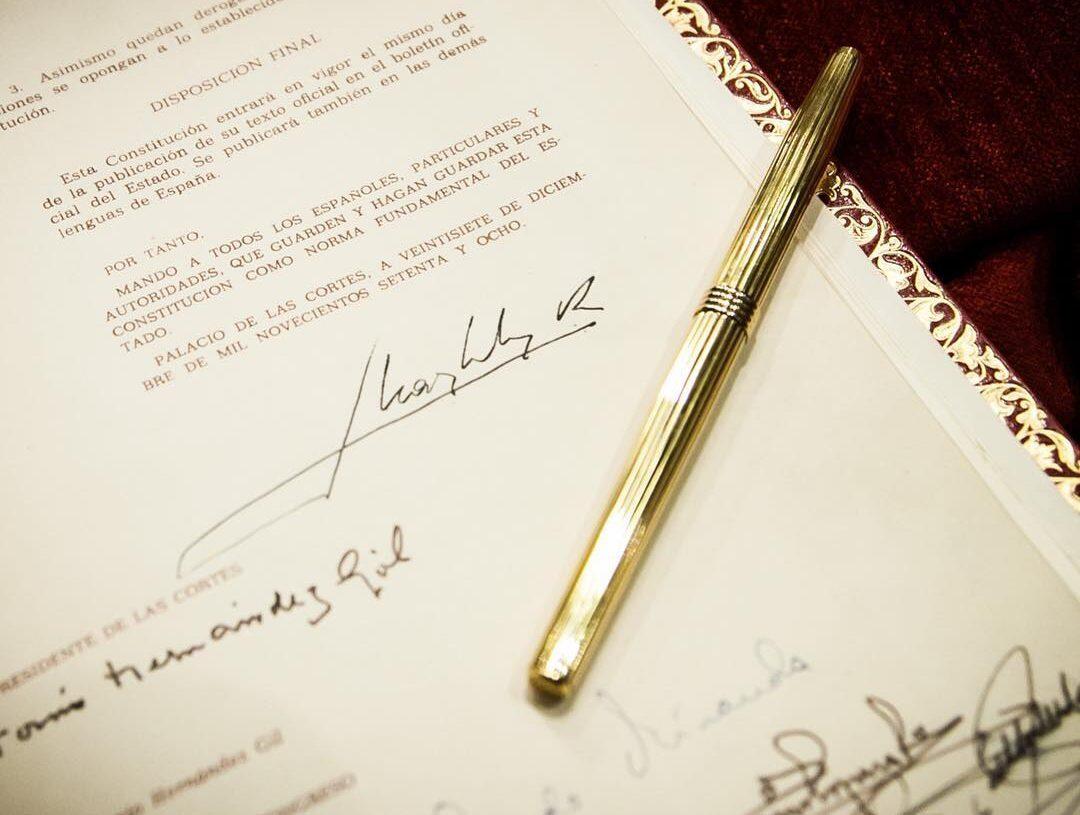 3. Asimismo quedan derog
iones se opongan a lo establecido
tución.
DISPOSICION FINAL
Esta Constitución entrará en vigor el mismo día
de la publicación de su texto oficial en el boletín ofi-
cial del Estado. Se publicará también en las demás
lenguas de España.
POR TANTO,
MANDO A TODOS LOS ESPAÑOLES, PARTICULARES Y
AUTORIDADES, QUE GUARDEN Y HAGAN GUARDAR ESTA
CONSTITUCION COMO NORMA FUNDAMENTAL DEL ES-
TADO.
PALACIO DE LAS CORTES, A VEINTISIETE DE DICIEM-
BRE DE MIL NOVECIENTOS SETENTA Y OCHO.
RESIDENTE DE LAS CORTES
Hernández Gil
Hernández Gil